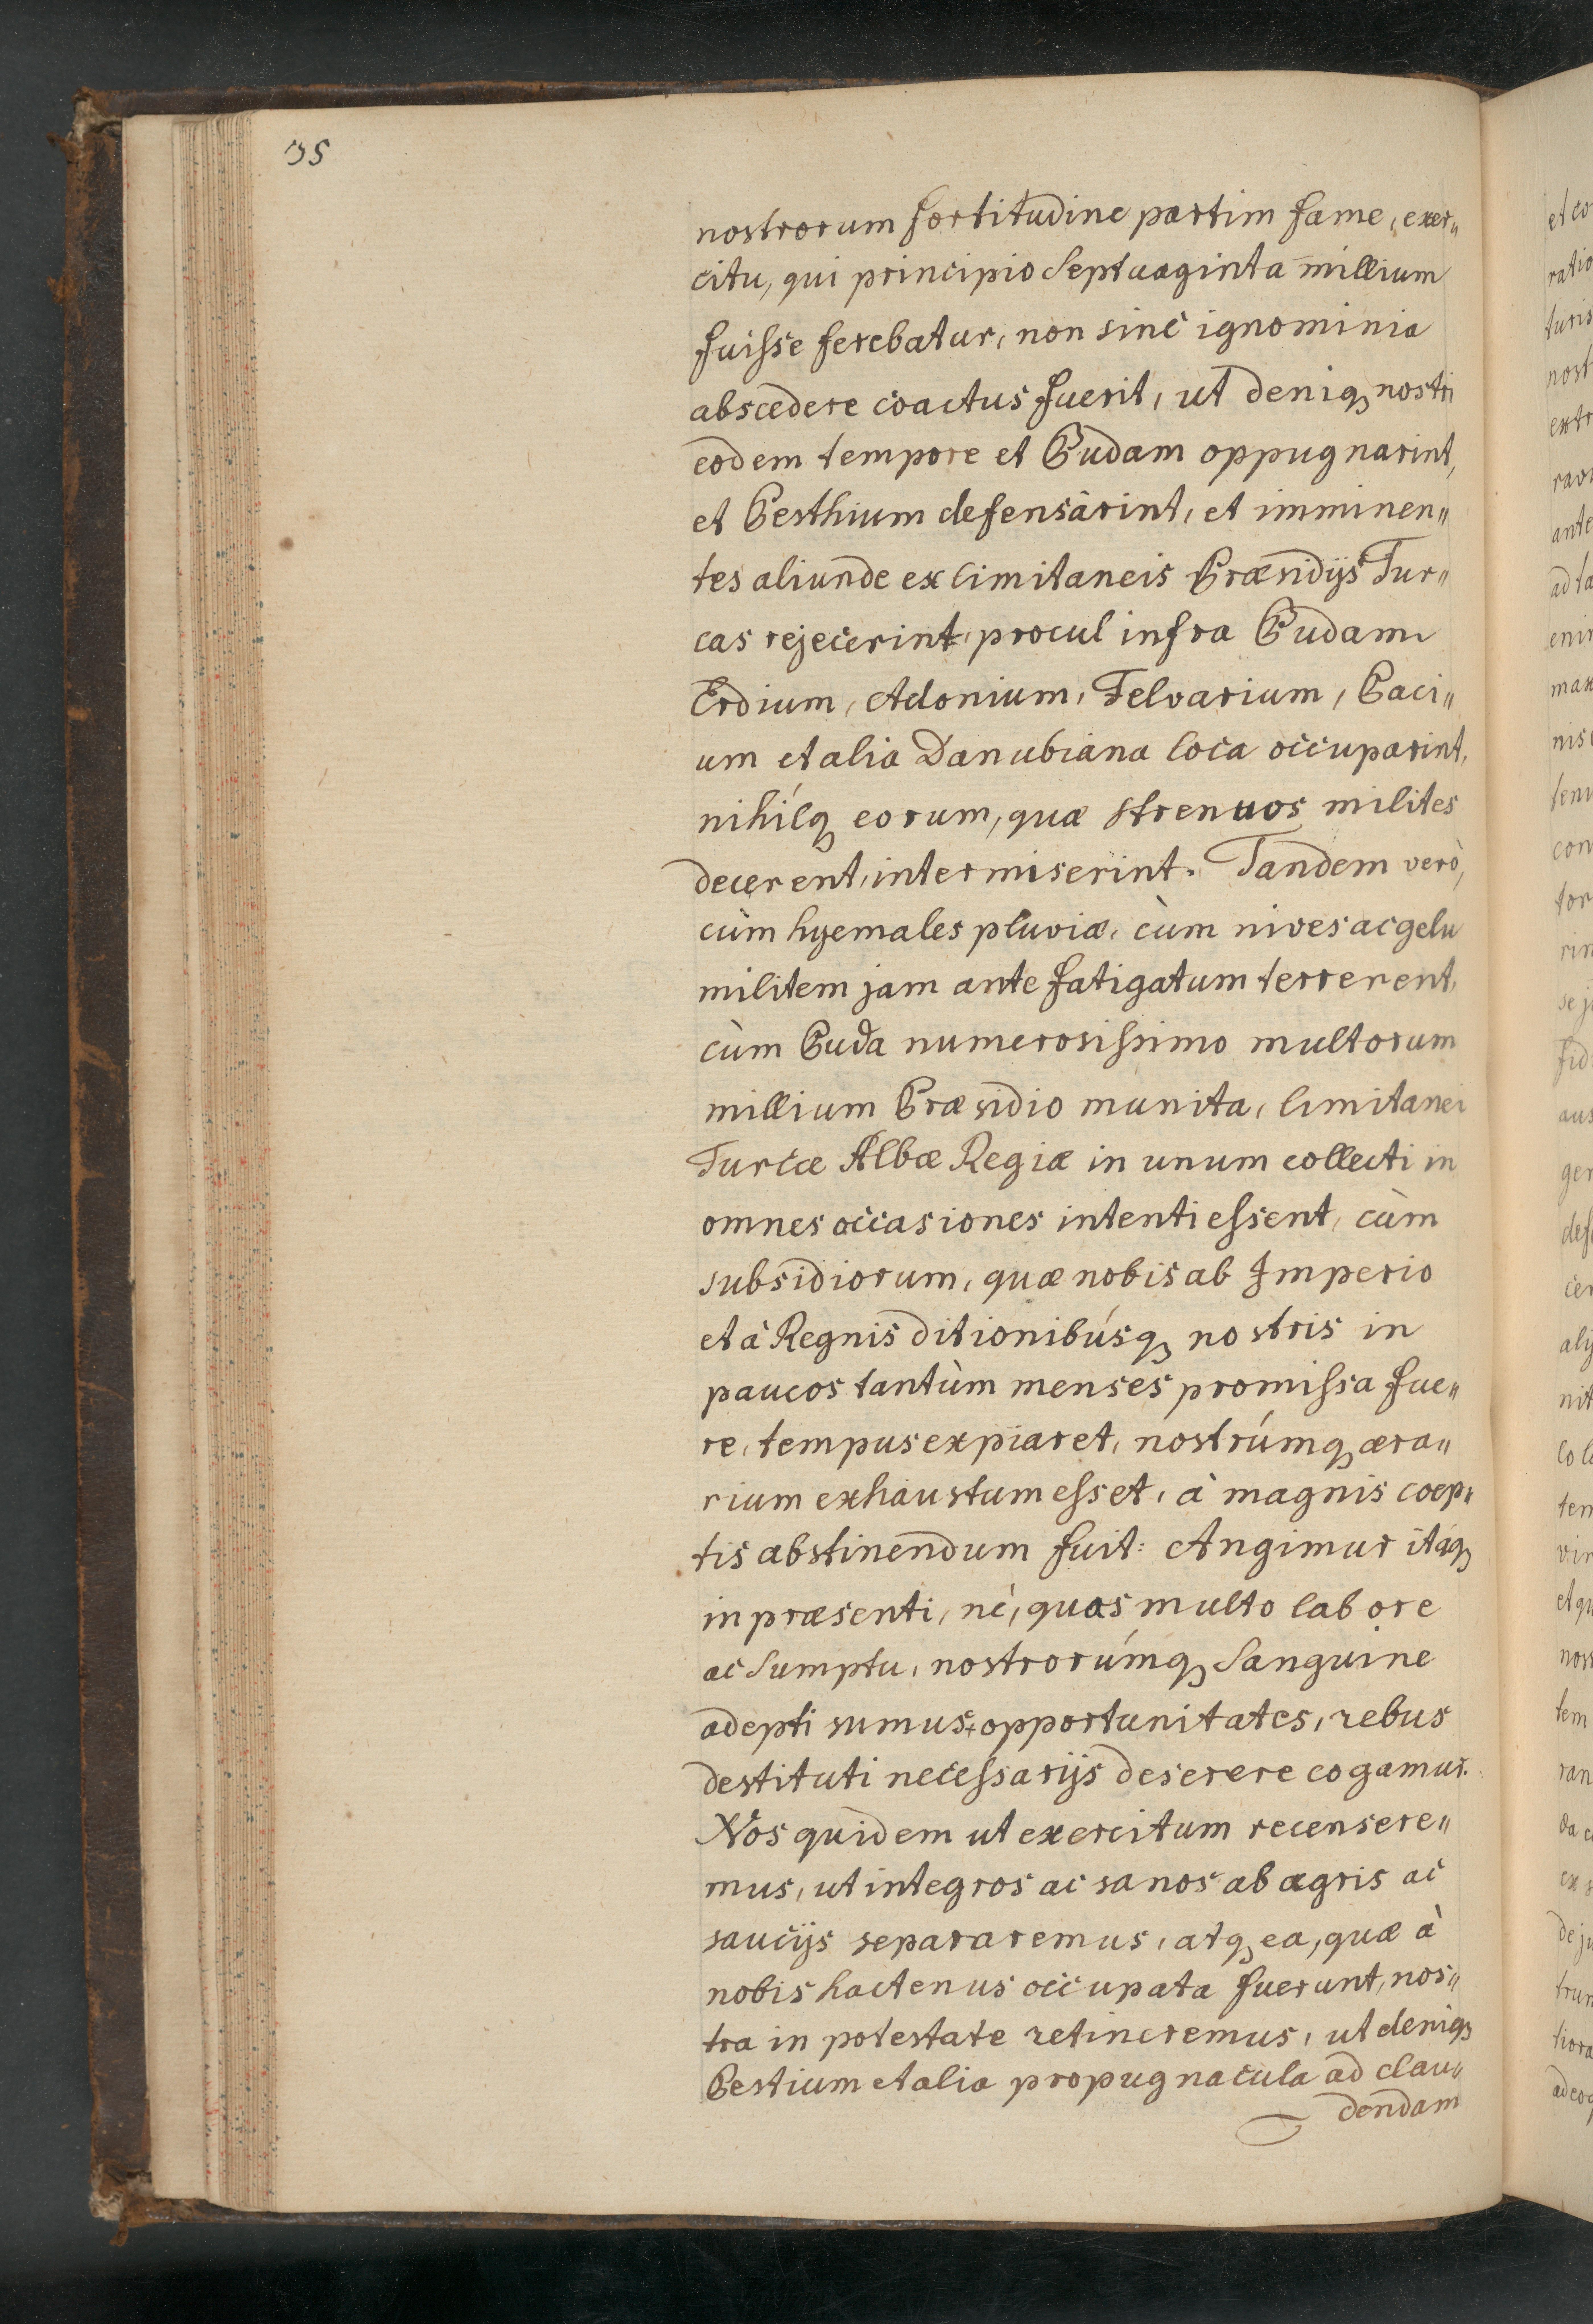 nostrorum fortitudine partim fame, exer„
citu, qui principio Septuaginta millium
fuisse ferebatur, non sine ignominia
abscedere coactus fuerit, ut deniq nostri
eodem tempore et Budam oppugnarint,
et Pesthium defensârint, et imminen„
tes aliunde ex limitaneis Præsidijs Tur„
cas rejecerint, procul infra Budam
Erdium, Adonium, Felvarium, Baci„
um et alia Danubiana loca occuparint,
nihílq eorum, quæ strenuos milites
decerent, intermiserint. Tandem verò,
cùm hyemales pluviæ, cùm nives ac gelu
militem jam ante fatigatum terrerent,
cùm Buda numerosissimo multorum
millium Præsidio munita, limitanei
Turcæ Albæ Regiæ in unum collecti in
omnes occasiones intenti essent, cùm
subsidiorum, quæ nobis ab Imperio
et à Regnis ditionibúsq nostris in
paucos tantùm menses promissa fue„
re, tempus expiaret, nostrúmq æra„
rium exhaustum esset, à magnis coep„
tis abstinendum fuit: Angimur itáq
in præsenti, nè, quas multo labore
ac Sumptu, nostrorúmq Sanguine
adepti sumus, opportunitates, rebus
destituti necessarijs deserere cogamur.
Nos quidem ut exercitum recensere„
mus, ut integros ac sanos ab ægris ac
saucijs separaremus, atq ea, quæ à
nobis hactenus occupata fuerunt, nos„
tra in potestate retineremus, ut deniq
Pestium et alia propugnacula ad clau„
dendam